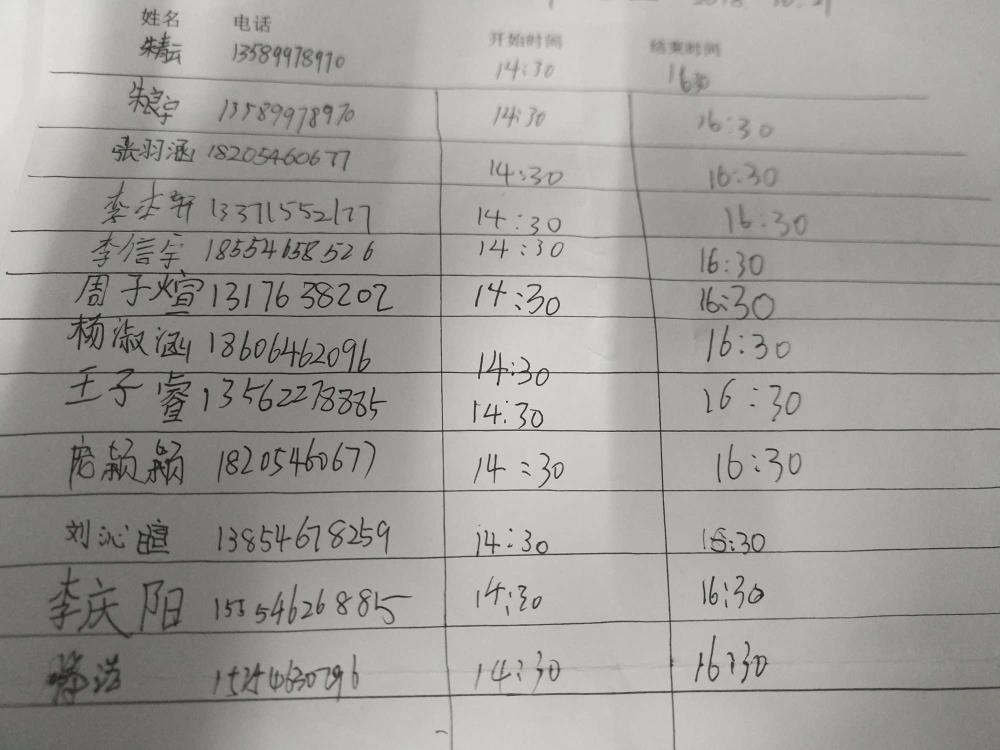 2018 10.21
姓名 电话 开始时间 结束时间
朱青云 13589978970 14:30 16:30
朱良宇 13589978970 14:30 16:30
张羽涵 18205460677 14:30 16:30
李本轩 13371552177 14:30 16:30
李信宇 18554658526 14:30 16:30
周子煊 1317638202 14:30 16:30
杨淑涵 18606462096 14:30 16:30
王子睿 13562278885 14:30 16:30
颖颖 18205460677 14:30 16:30
刘沁暄 13854678259 14:30 16:30
李庆阳 15554626885 14:30 16:30
诺 15254630796 14:30 16:30